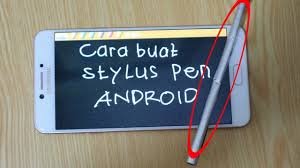 Cara buat
stylus pen
ANDROID